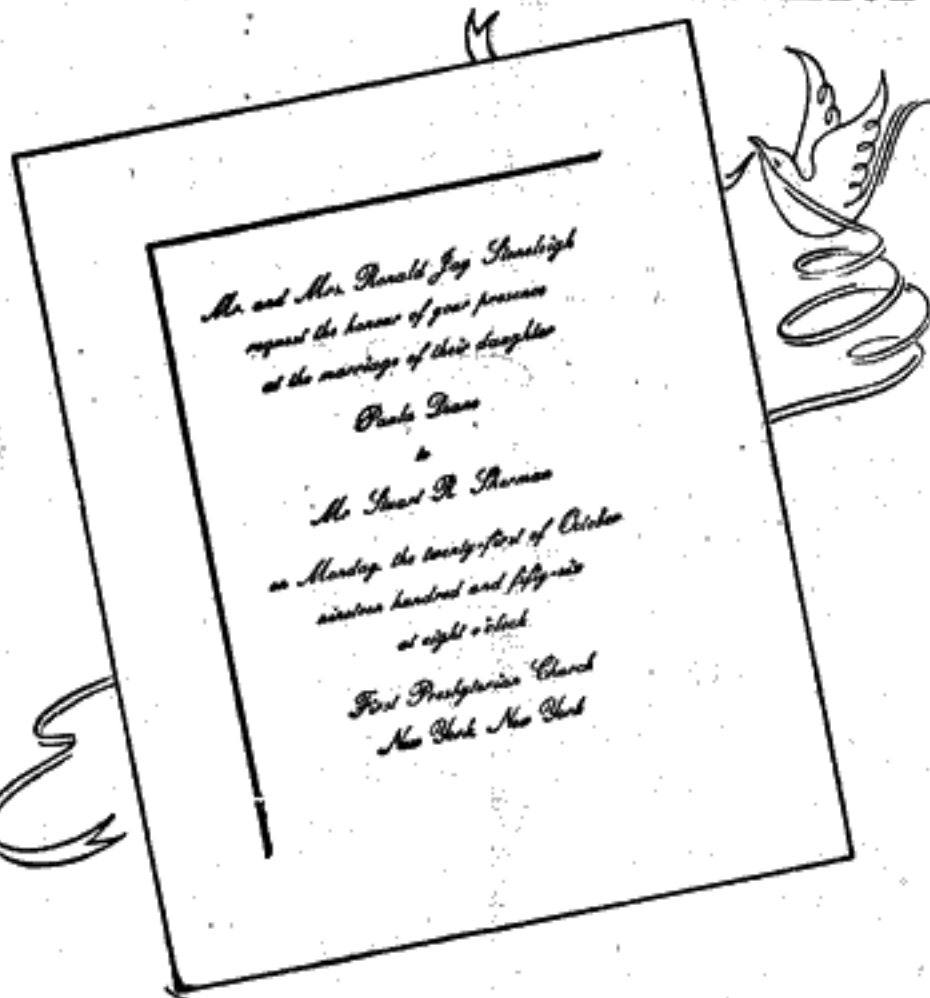 Mr. and Mrs. Ronald Jay Stoneleigh
request the honour of your presence
at the marriage of their daughter
Paula Diane
to
Mr Stuart R. Sherman
on Monday, the twenty-first of October
nineteen hundred and fifty-six
at eight o'clock
First Presbyterian Church
New York, New York